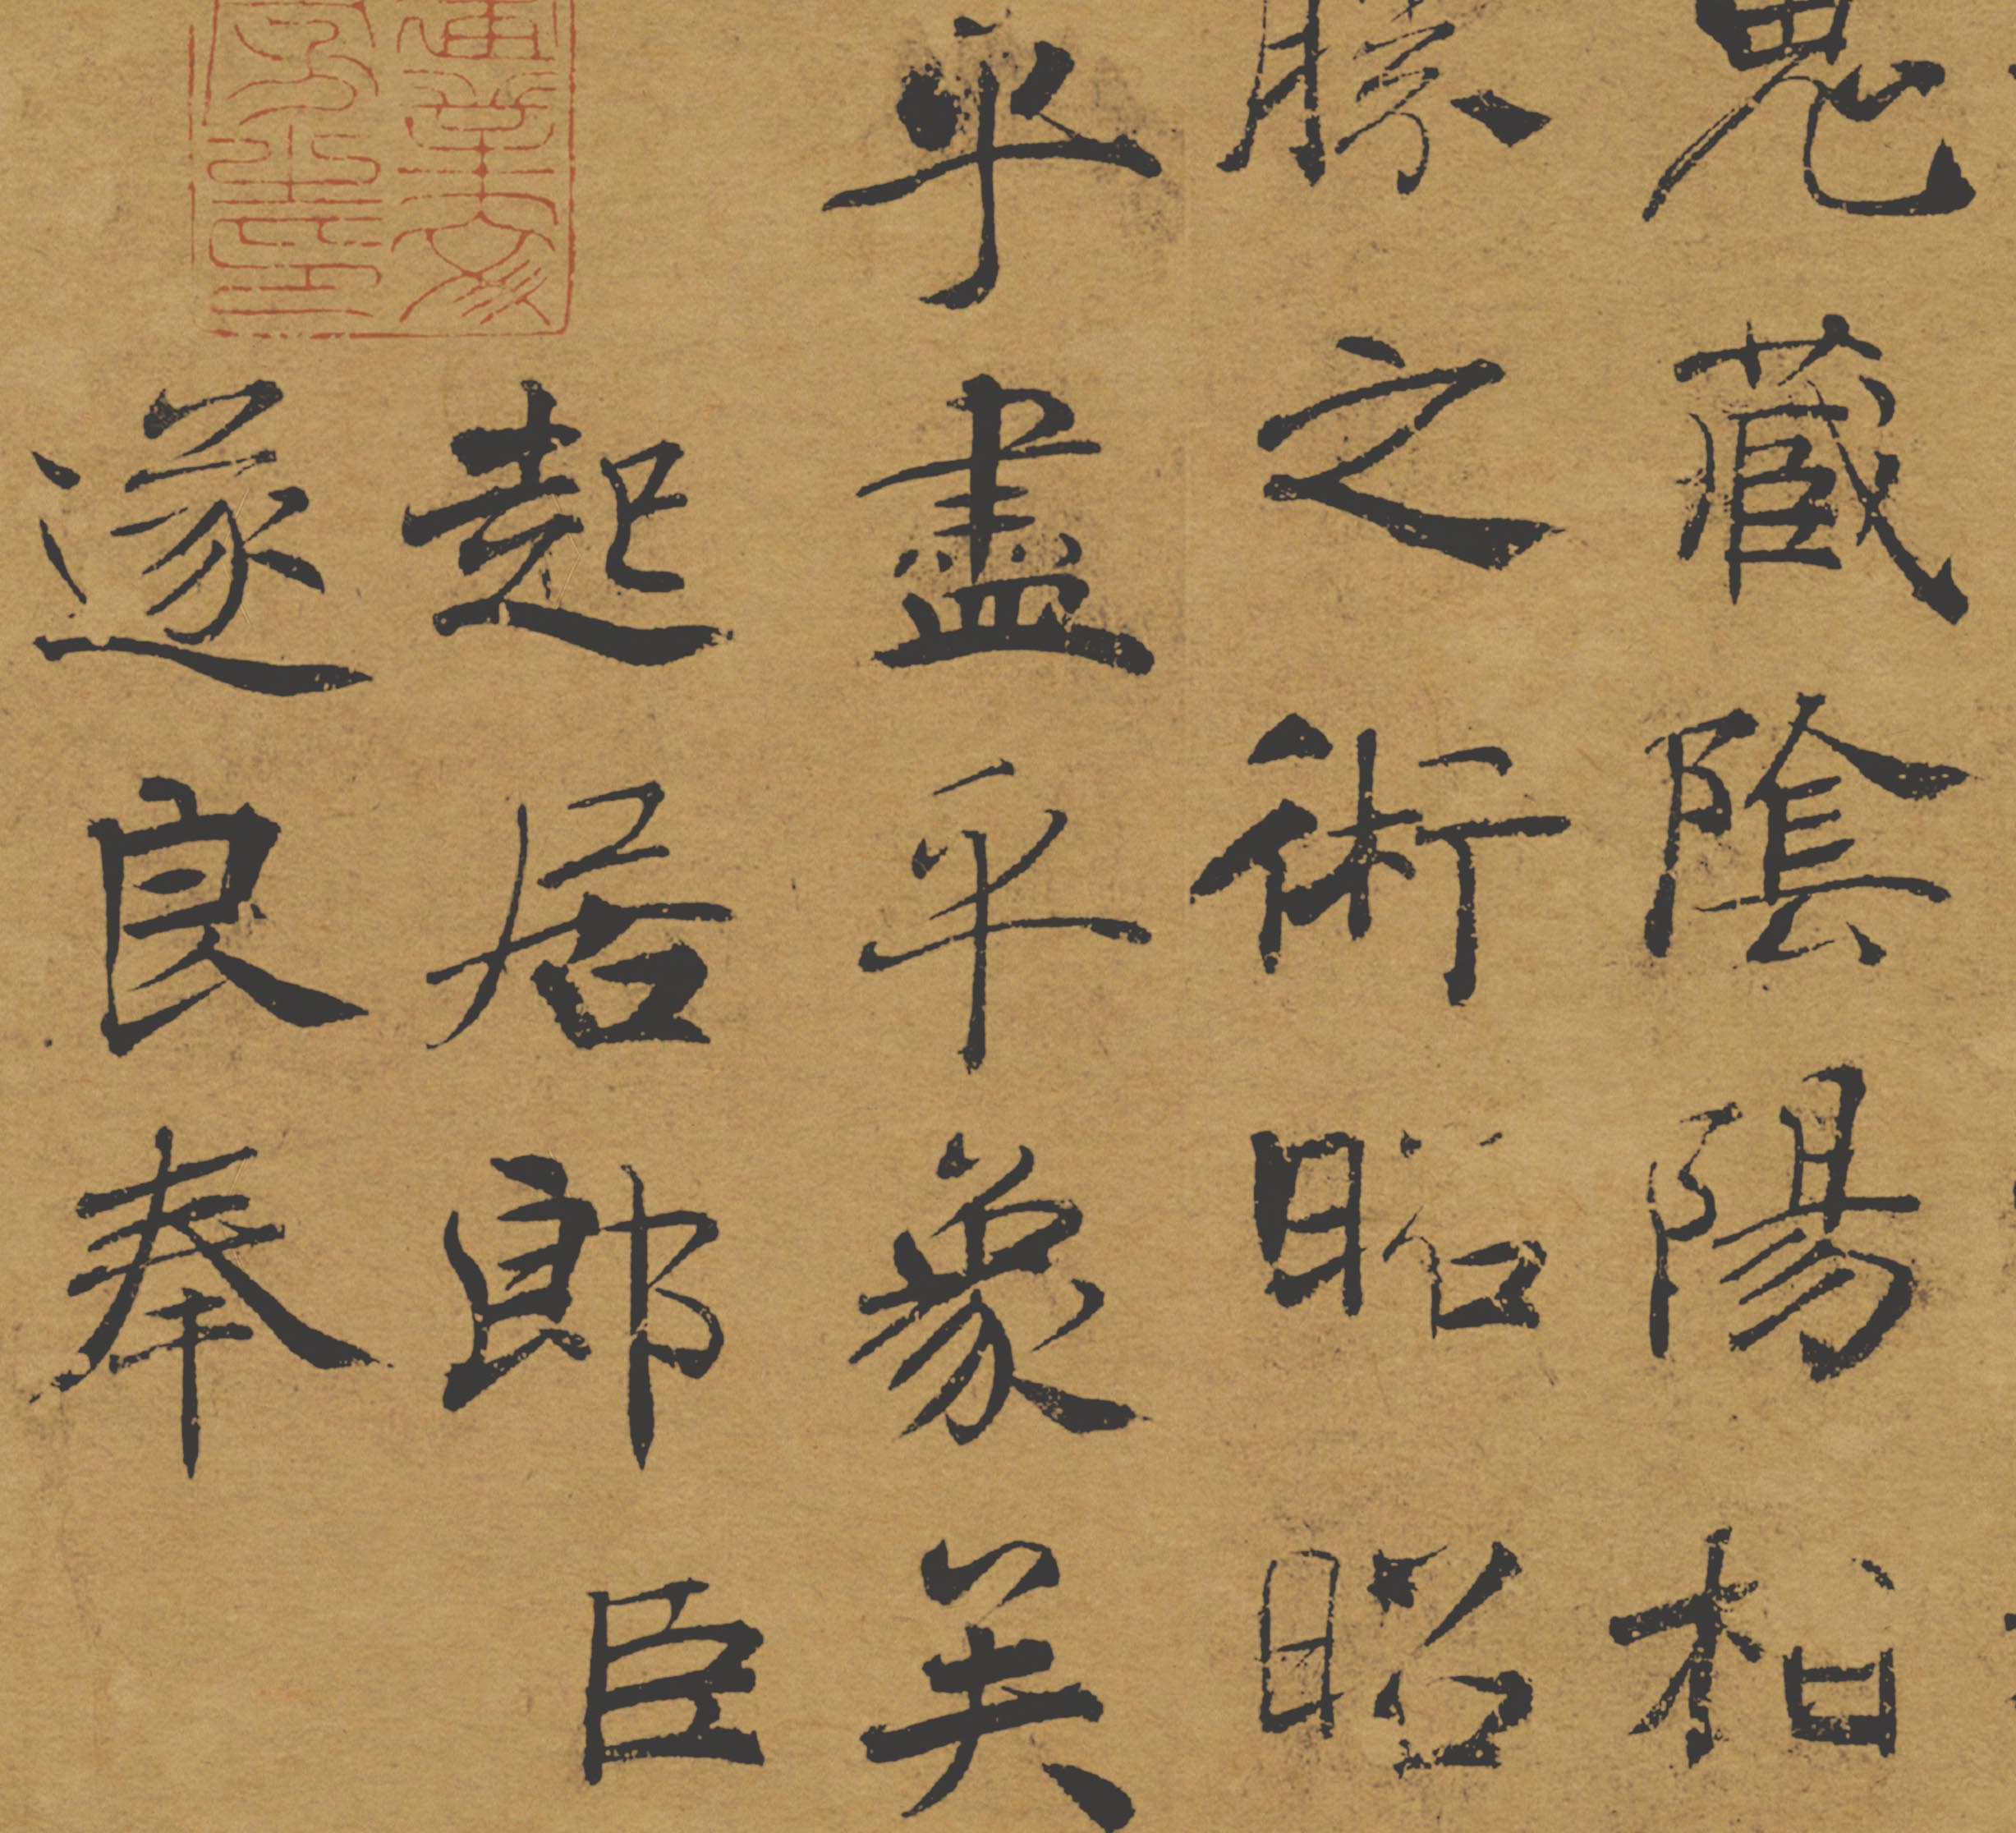 鬼藏陰陽相
勝之術昭昭
乎盡乎象矣
起居郎臣
遂良奉